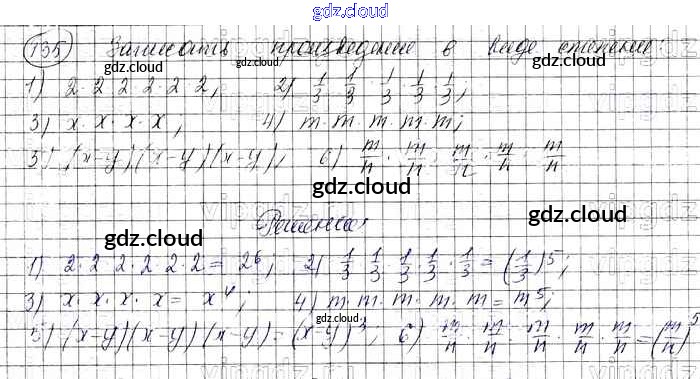 gdz.cloud
135 Записать произведение в виде степени:
gdz.cloud gdz.cloud
1) 2·2·2·2·2·2; 2) 1/3·1/3·1/3·1/3·1/3;
3) x·x·x·x; 4) m·m·m·m·m;
5) (x-y)(x-y)(x-y); 6) m/n·m/n·m/n·m/n·m/n
gdz.cloud gdz.cloud
Решение
gdz.cloud
1) 2·2·2·2·2·2 = 2^6; 2) 1/3·1/3·1/3·1/3·1/3 = (1/3)^5;
3) x·x·x·x = x^4; 4) m·m·m·m·m = m^5;
gdz.cloud
5) (x-y)(x-y)(x-y) = (x-y)^3; 6) m/n·m/n·m/n·m/n·m/n = (m/n)^5